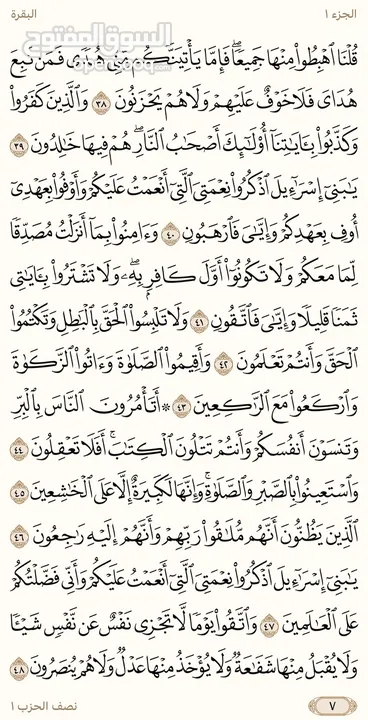 الجزء ١
البقرة
السوق المفتوح
قُلْنَا اهْبِطُوا مِنْهَا جَمِيعًا فَإِمَّا يَأْتِيَنَّكُم مِّنِّي هُدًى فَمَن تَبِعَ
هُدَايَ فَلَا خَوْفٌ عَلَيْهِمْ وَلَا هُمْ يَحْزَنُونَ ٣٨ وَالَّذِينَ كَفَرُوا
وَكَذَّبُوا بِـَٔايَٰتِنَا أُولَٰئِكَ أَصْحَابُ النَّارِ هُمْ فِيهَا خَالِدُونَ ٣٩
يَٰبَنِي إِسْرَٰٓءِيلَ اذْكُرُوا نِعْمَتِيَ الَّتِي أَنْعَمْتُ عَلَيْكُمْ وَأَوْفُوا بِعَهْدِي
أُوفِ بِعَهْدِكُمْ وَإِيَّٰيَ فَارْهَبُونِ ٤٠ وَءَامِنُوا بِمَا أَنزَلْتُ مُصَدِّقًا
لِّمَا مَعَكُمْ وَلَا تَكُونُوا أَوَّلَ كَافِرٍ بِهِ وَلَا تَشْتَرُوا بِـَٔايَٰتِي
ثَمَنًا قَلِيلًا وَإِيَّٰيَ فَاتَّقُونِ ٤١ وَلَا تَلْبِسُوا الْحَقَّ بِالْبَٰطِلِ وَتَكْتُمُوا
الْحَقَّ وَأَنتُمْ تَعْلَمُونَ ٤٢ وَأَقِيمُوا الصَّلَوٰةَ وَءَاتُوا الزَّكَوٰةَ
وَارْكَعُوا مَعَ الرَّٰكِعِينَ ٤٣ ۞ أَتَأْمُرُونَ النَّاسَ بِالْبِرِّ
وَتَنسَوْنَ أَنفُسَكُمْ وَأَنتُمْ تَتْلُونَ الْكِتَٰبَ أَفَلَا تَعْقِلُونَ ٤٤
وَاسْتَعِينُوا بِالصَّبْرِ وَالصَّلَوٰةِ وَإِنَّهَا لَكَبِيرَةٌ إِلَّا عَلَى الْخَٰشِعِينَ ٤٥
الَّذِينَ يَظُنُّونَ أَنَّهُم مُّلَٰقُوا رَبِّهِمْ وَأَنَّهُمْ إِلَيْهِ رَٰجِعُونَ ٤٦
يَٰبَنِي إِسْرَٰٓءِيلَ اذْكُرُوا نِعْمَتِيَ الَّتِي أَنْعَمْتُ عَلَيْكُمْ وَأَنِّي فَضَّلْتُكُمْ
عَلَى الْعَٰلَمِينَ ٤٧ وَاتَّقُوا يَوْمًا لَّا تَجْزِي نَفْسٌ عَن نَّفْسٍ شَيْـًٔا
وَلَا يُقْبَلُ مِنْهَا شَفَٰعَةٌ وَلَا يُؤْخَذُ مِنْهَا عَدْلٌ وَلَا هُمْ يُنصَرُونَ ٤٨
٧
نصف الحزب ١